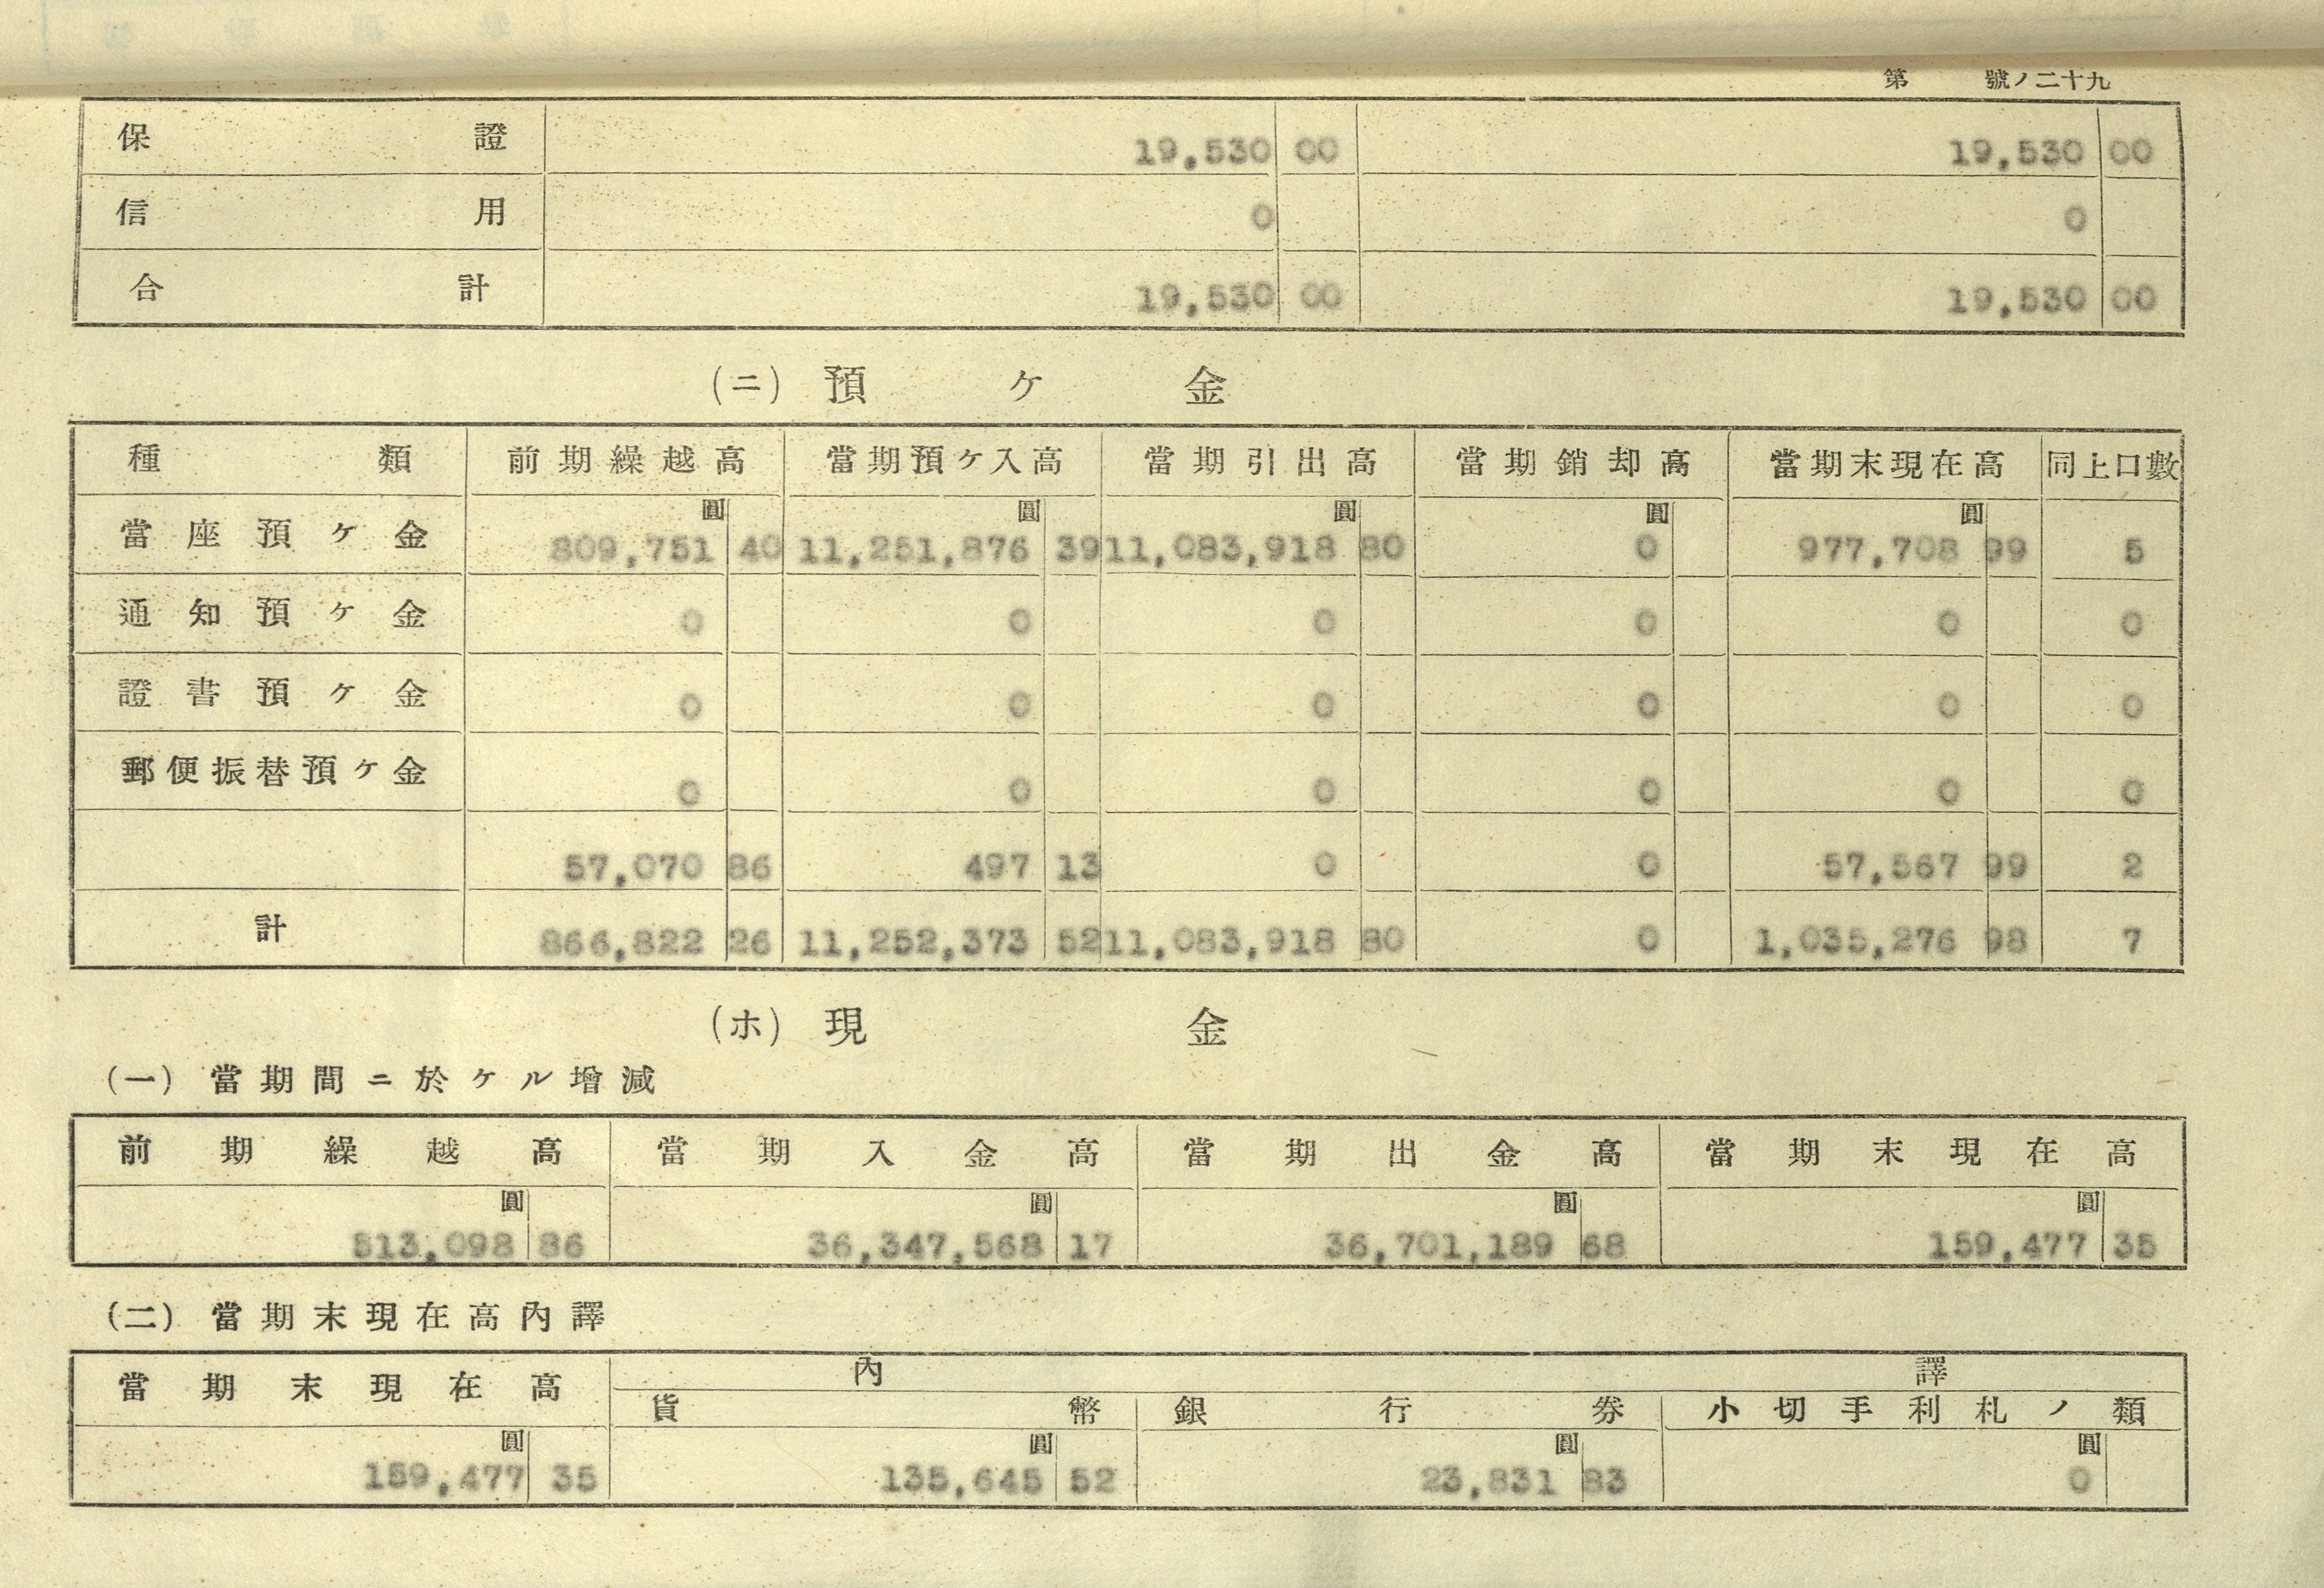 第 號ノ二十九
保證 19,530 00 19,530 00
信用 0 0
合計 19,530 00 19,530 00
(ニ) 預ケ金
種類 前期繰越高 當期預ケ入高 當期引出高 當期銷却高 當期末現在高 同上口數
圓 圓 圓 圓 圓
當座預ケ金 809,751 40 11,251,876 39 11,083,918 80 0 977,708 99 5
通知預ケ金 0 0 0 0 0 0
證書預ケ金 0 0 0 0 0 0
郵便振替預ケ金 0 0 0 0 0 0
57,070 86 497 13 0 0 57,567 99 2
計 866,822 26 11,252,373 52 11,083,918 80 0 1,035,276 98 7
(ホ) 現金
(一) 當期間ニ於ケル增減
前期繰越高 當期入金高 當期出金高 當期末現在高
圓 圓 圓 圓
513,098 86 36,347,568 17 36,701,189 68 159,477 35
(二) 當期末現在高內譯
當期末現在高 內譯
貨幣 銀行券 小切手利札ノ類
圓 圓 圓 圓
159,477 35 135,645 52 23,831 83 0